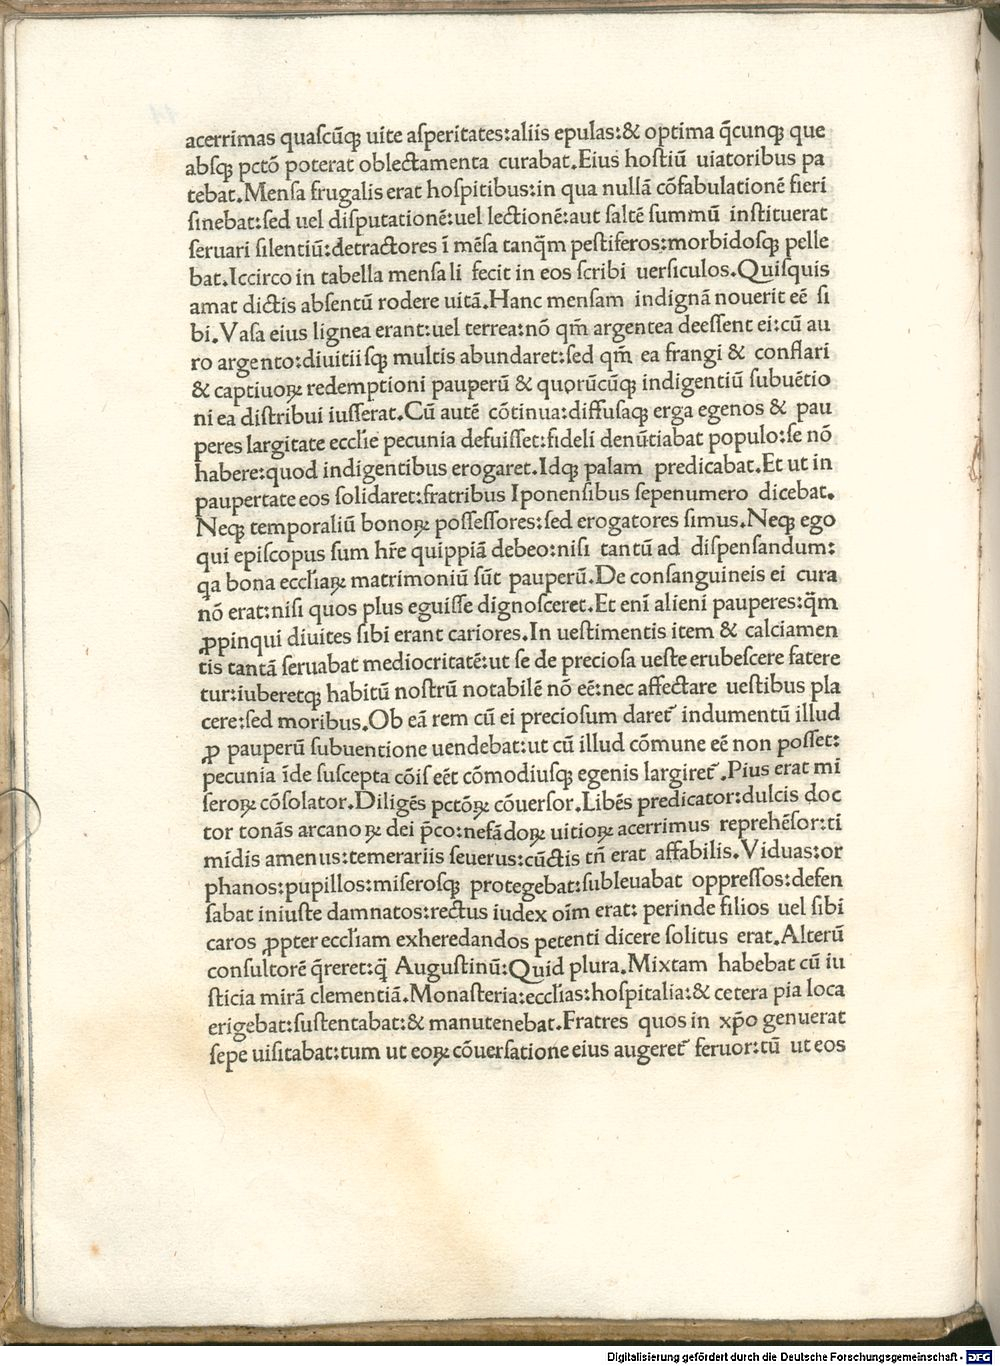 acerrimas quaſcũqꝫ uite aſperitates:aliis epulas:& optima q̃cunqꝫ que
abſqꝫ pctõ poterat oblectamenta curabat.Eius hoſtiũ uiatoribus pa
tebat.Menſa frugalis erat hoſpitibus:in qua nullã cõfabulationẽ fieri
ſinebat:ſed uel diſputationẽ:uel lectionẽ:aut ſaltẽ ſummũ inſtituerat
ſeruari ſilentiũ:detractores ĩ mẽſa tanq̃m peſtiferos:morbidoſqꝫ pelle
bat.Iccirco in tabella menſali fecit in eos ſcribi uerſiculos.Quiſquis
amat dictis abſentũ rodere uitã.Hanc menſam indignã nouerit eẽ ſi
bi.Vaſa eius lignea erant:uel terrea:nõ qm̃ argentea deeſſent ei:cũ au
ro argento:diuitiiſqꝫ multis abundaret:ſed qm̃ ea frangi & conflari
& captiuoꝝ redemptioni pauperũ & quorũcũqꝫ indigentiũ ſubuẽtio
ni ea diſtribui iuſſerat.Cũ autẽ cõtinua:diffuſaqꝫ erga egenos & pau
peres largitate eccłie pecunia defuiſſet:fideli denũtiabat populo:ſe nõ
habere:quod indigentibus erogaret.Idqꝫ palam predicabat.Et ut in
paupertate eos ſolidaret:fratribus Iponenſibus ſepenumero dicebat.
Neqꝫ temporaliũ bonoꝝ poſſeſſores:ſed erogatores ſimus.Neqꝫ ego
qui epiſcopus ſum hr̃e quippiã debeo:niſi tantũ ad diſpenſandum:
qa bona eccłiaꝝ matrimoniũ ſũt pauperũ.De conſanguineis ei cura
nõ erat:niſi quos plus eguiſſe dignoſceret.Et enĩ alieni pauperes:q̃m
ꝓpinqui diuites ſibi erant cariores.In ueſtimentis item & calciamen
tis tantã ſeruabat mediocritatẽ:ut ſe de precioſa ueſte erubeſcere fatere
tur:iuberetqꝫ habitũ noſtrũ notabilẽ nõ eẽ:nec affectare ueſtibus pla
cere:ſed moribus.Ob eã rem cũ ei precioſum daret᷑ indumentũ illud
ꝓ pauperũ ſubuentione uendebat:ut cũ illud cõmune eẽ non poſſet:
pecunia ĩde ſuscepta cõiſ eẽt cõmodiuſqꝫ egenis largiret᷑.Pius erat mi
ſeroꝝ cõſolator.Diligẽs pctõꝝ cõuerſor.Libẽs predicator:dulcis doc
tor tonãs arcanoꝝ dei p̃co:nefãdoꝝ uitioꝝ acerrimus reprehẽſor:ti
midis amenus:temerariis ſeuerus:cũctis tñ erat affabilis.Viduas:or
phanos:pupillos:miſeroſqꝫ protegebat:ſubleuabat oppreſſos:defen
ſabat iniuſte damnatos:rectus iudex oĩm erat: perinde filios uel ſibi
caros ꝓpter eccłiam exheredandos petenti dicere ſolitus erat.Alterũ
conſultorẽ q̃reret:q̃ Auguſtinũ:Quid plura.Mixtam habebat cũ iu
ſticia mirã clementiã.Monaſteria:eccłias:hoſpitalia:& cetera pia loca
erigebat:ſuſtentabat:& manutenebat.Fratres quos in xp̃o genuerat
ſepe uiſitabat:tum ut eoꝝ cõuerſatione eius augeret᷑ feruor:tũ ut eos
Digitalisierung gefördert durch die Deutsche Forschungsgemeinschaft - DFG